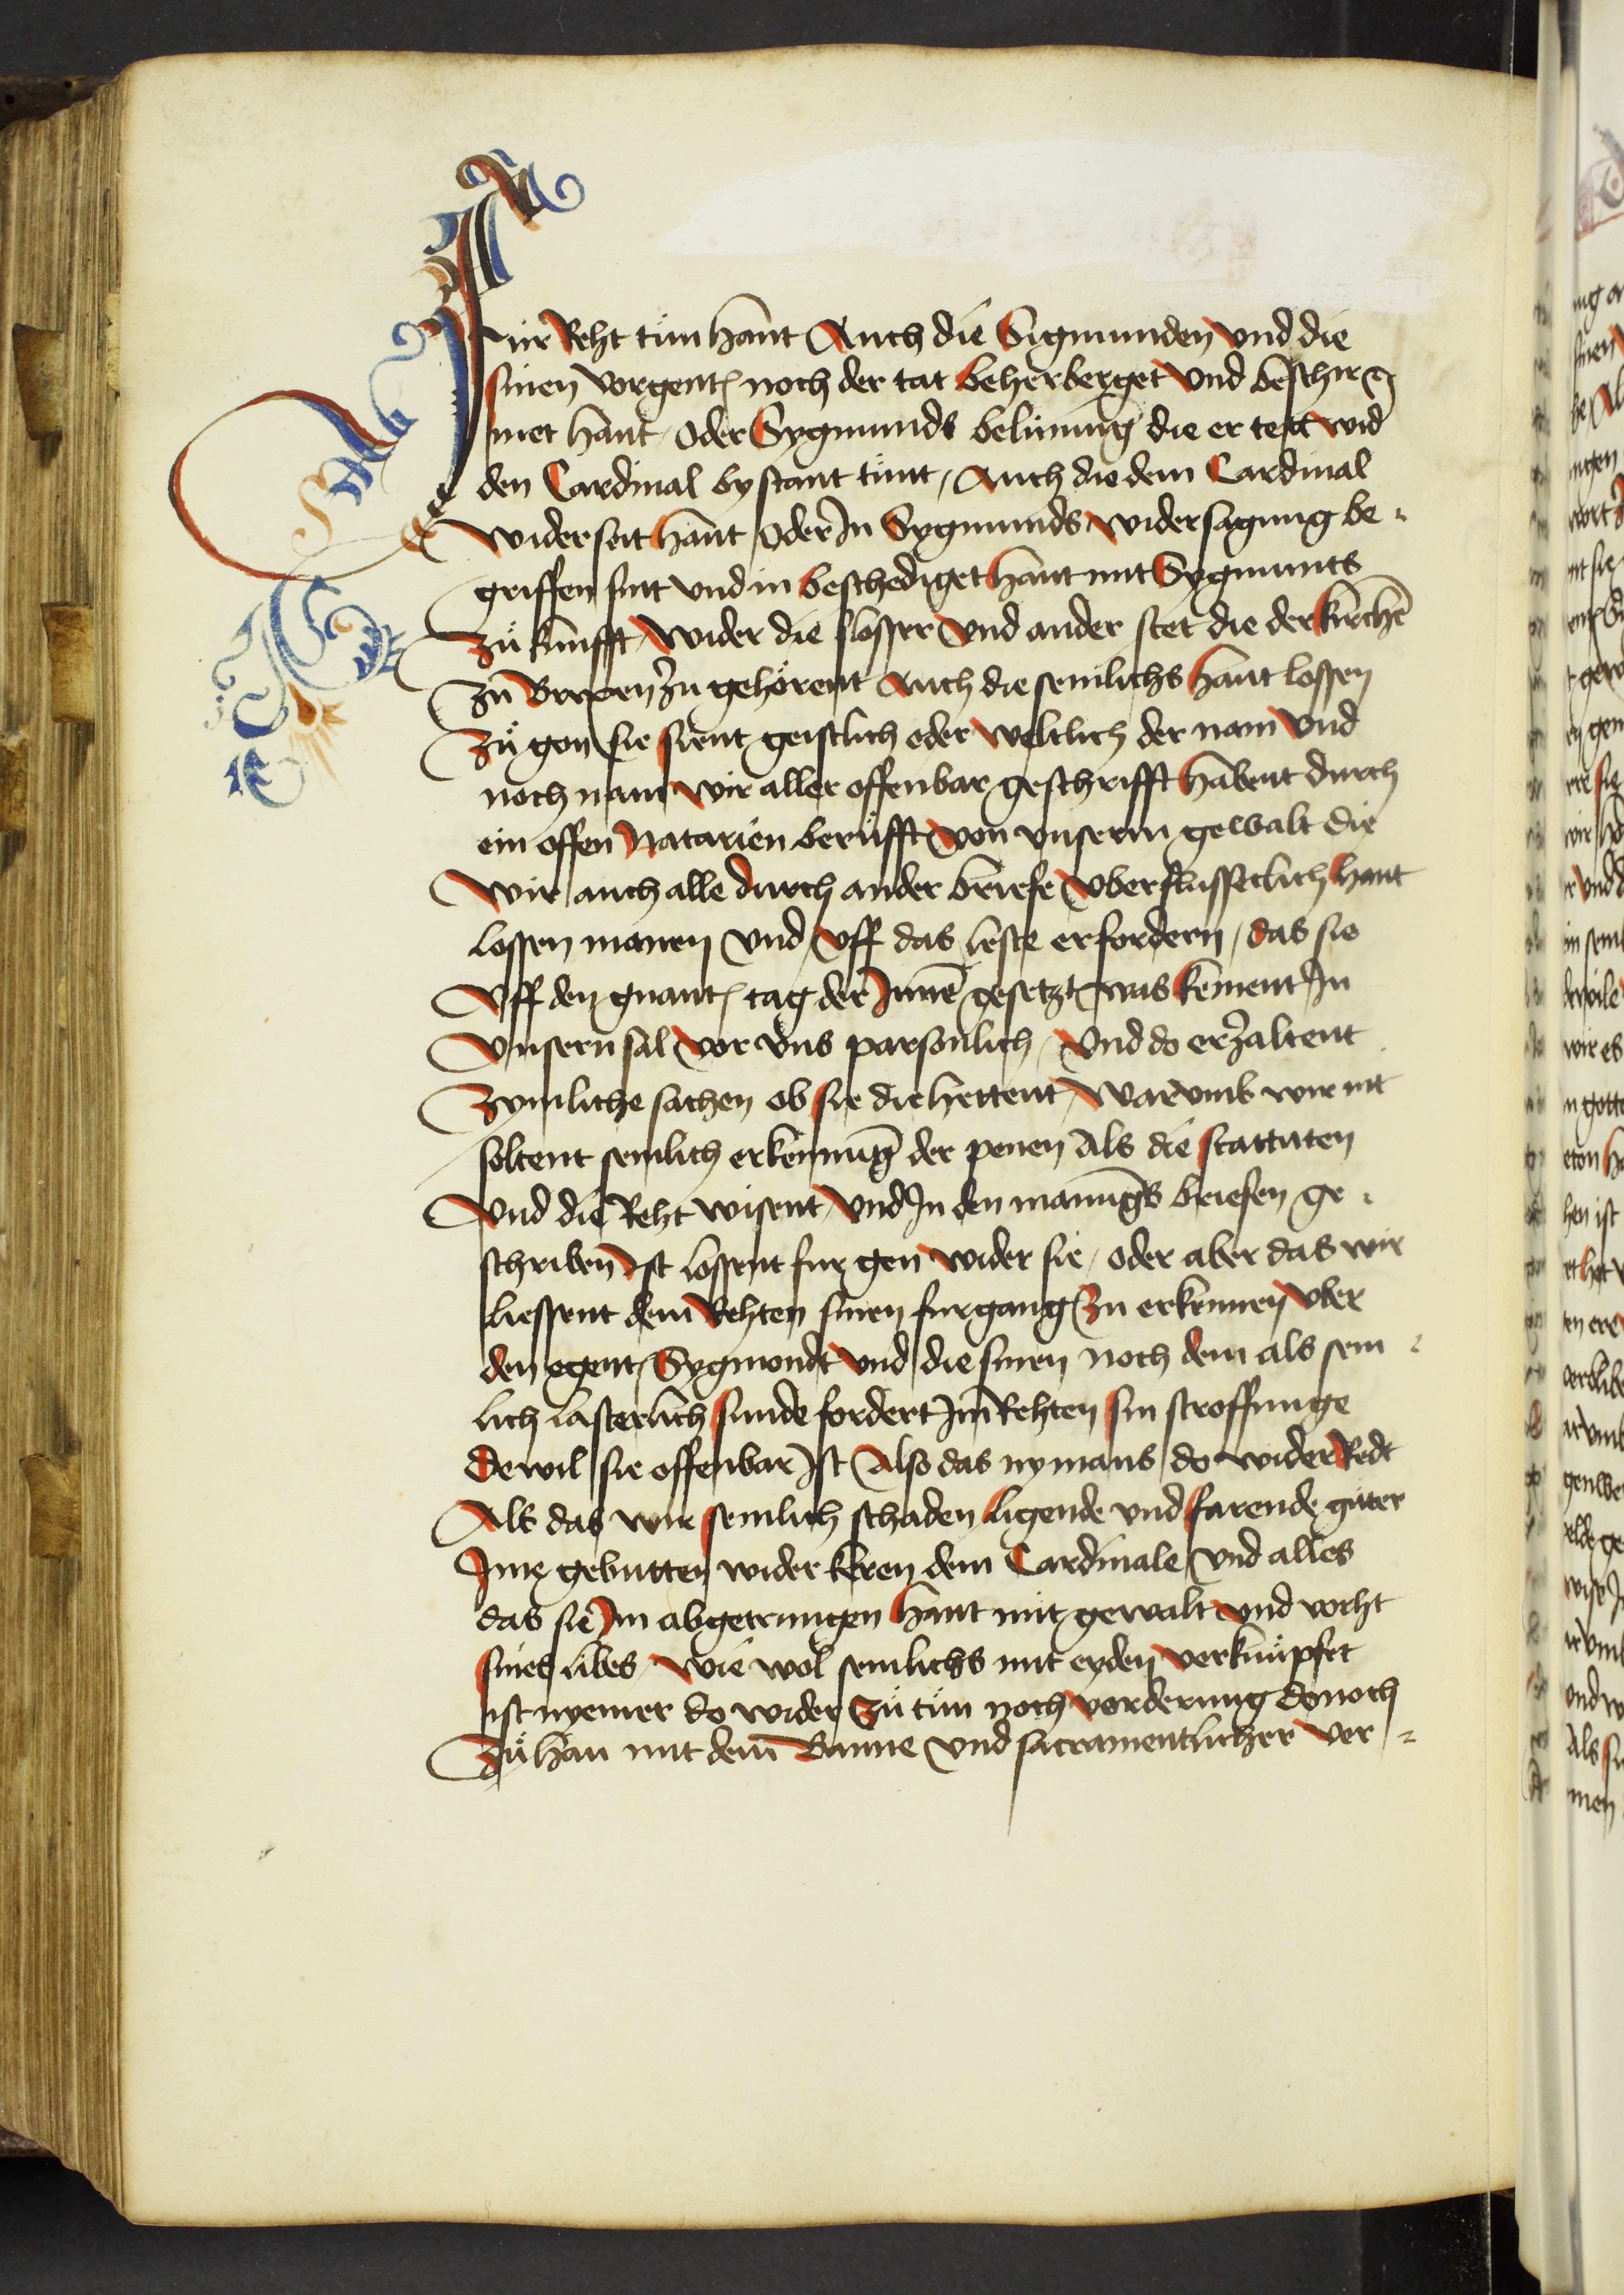 für Reht tün hant Auch die Sigmunden vnd die
sinen vorgent noch der tat beherberget vnd beschir=
met hant / oder Sygmunds belünung die er tett wid
den Cardinal by stant tünt / Auch die dem Cardinal
widerseit hant oder In Sygmunds widersagung be=
griffen sint vnd in beschediget hant mit Sygmunts
zů kunfft / wider die slosser vnd ander stet die der kirchē
zů Brixen zů gehörent Auch die semlichs hant lossen
zů gon sie sient geistlich oder weltlich der nam vnd
noch nam wir aller offenbar geschrifft habent durch
ein offen Natarien berüfft von vnserm gewalt die
wir auch alle durch ander briefe vberflussiclich hant
lossen manen vnd vff das leste erfordern / das sie
vff den gnant tag der Innē gesetzt was kement In
vnsern sal vor vns parsonlich / vnd do erzaltent
zymliche sachen ob sie die hettent / warumb wir nit
soltent semlich erkennung der penen als die stattuten
vnd die Reht wisent / vnd In den manungs briefen ge=
schriben Ist lossent fur gen wider sie / oder aber das wir
liessent dem Rehten sinen furgang zu erkennen vber
den egent / Sygmondt vnd die sinen noch dem als sem=
lich lasterlich sunde fordert Im Rehten sin stroffunge
dewil sie offenbar Ist Also das nymans do wider Redt
Als das wir semlich schaden ligende vnd farende güter
Ime gebutten wider keren dem Cardinale vnd alles
das sie Im abgetrungen hant mit gewalt vnd vorht
sines libes / wie wol semlichs mit eyden verknüpfet
ist nyemer do wider zů tün noch vorderung donoch
zů han mit dem Banne vnd sacramentlicher ver=